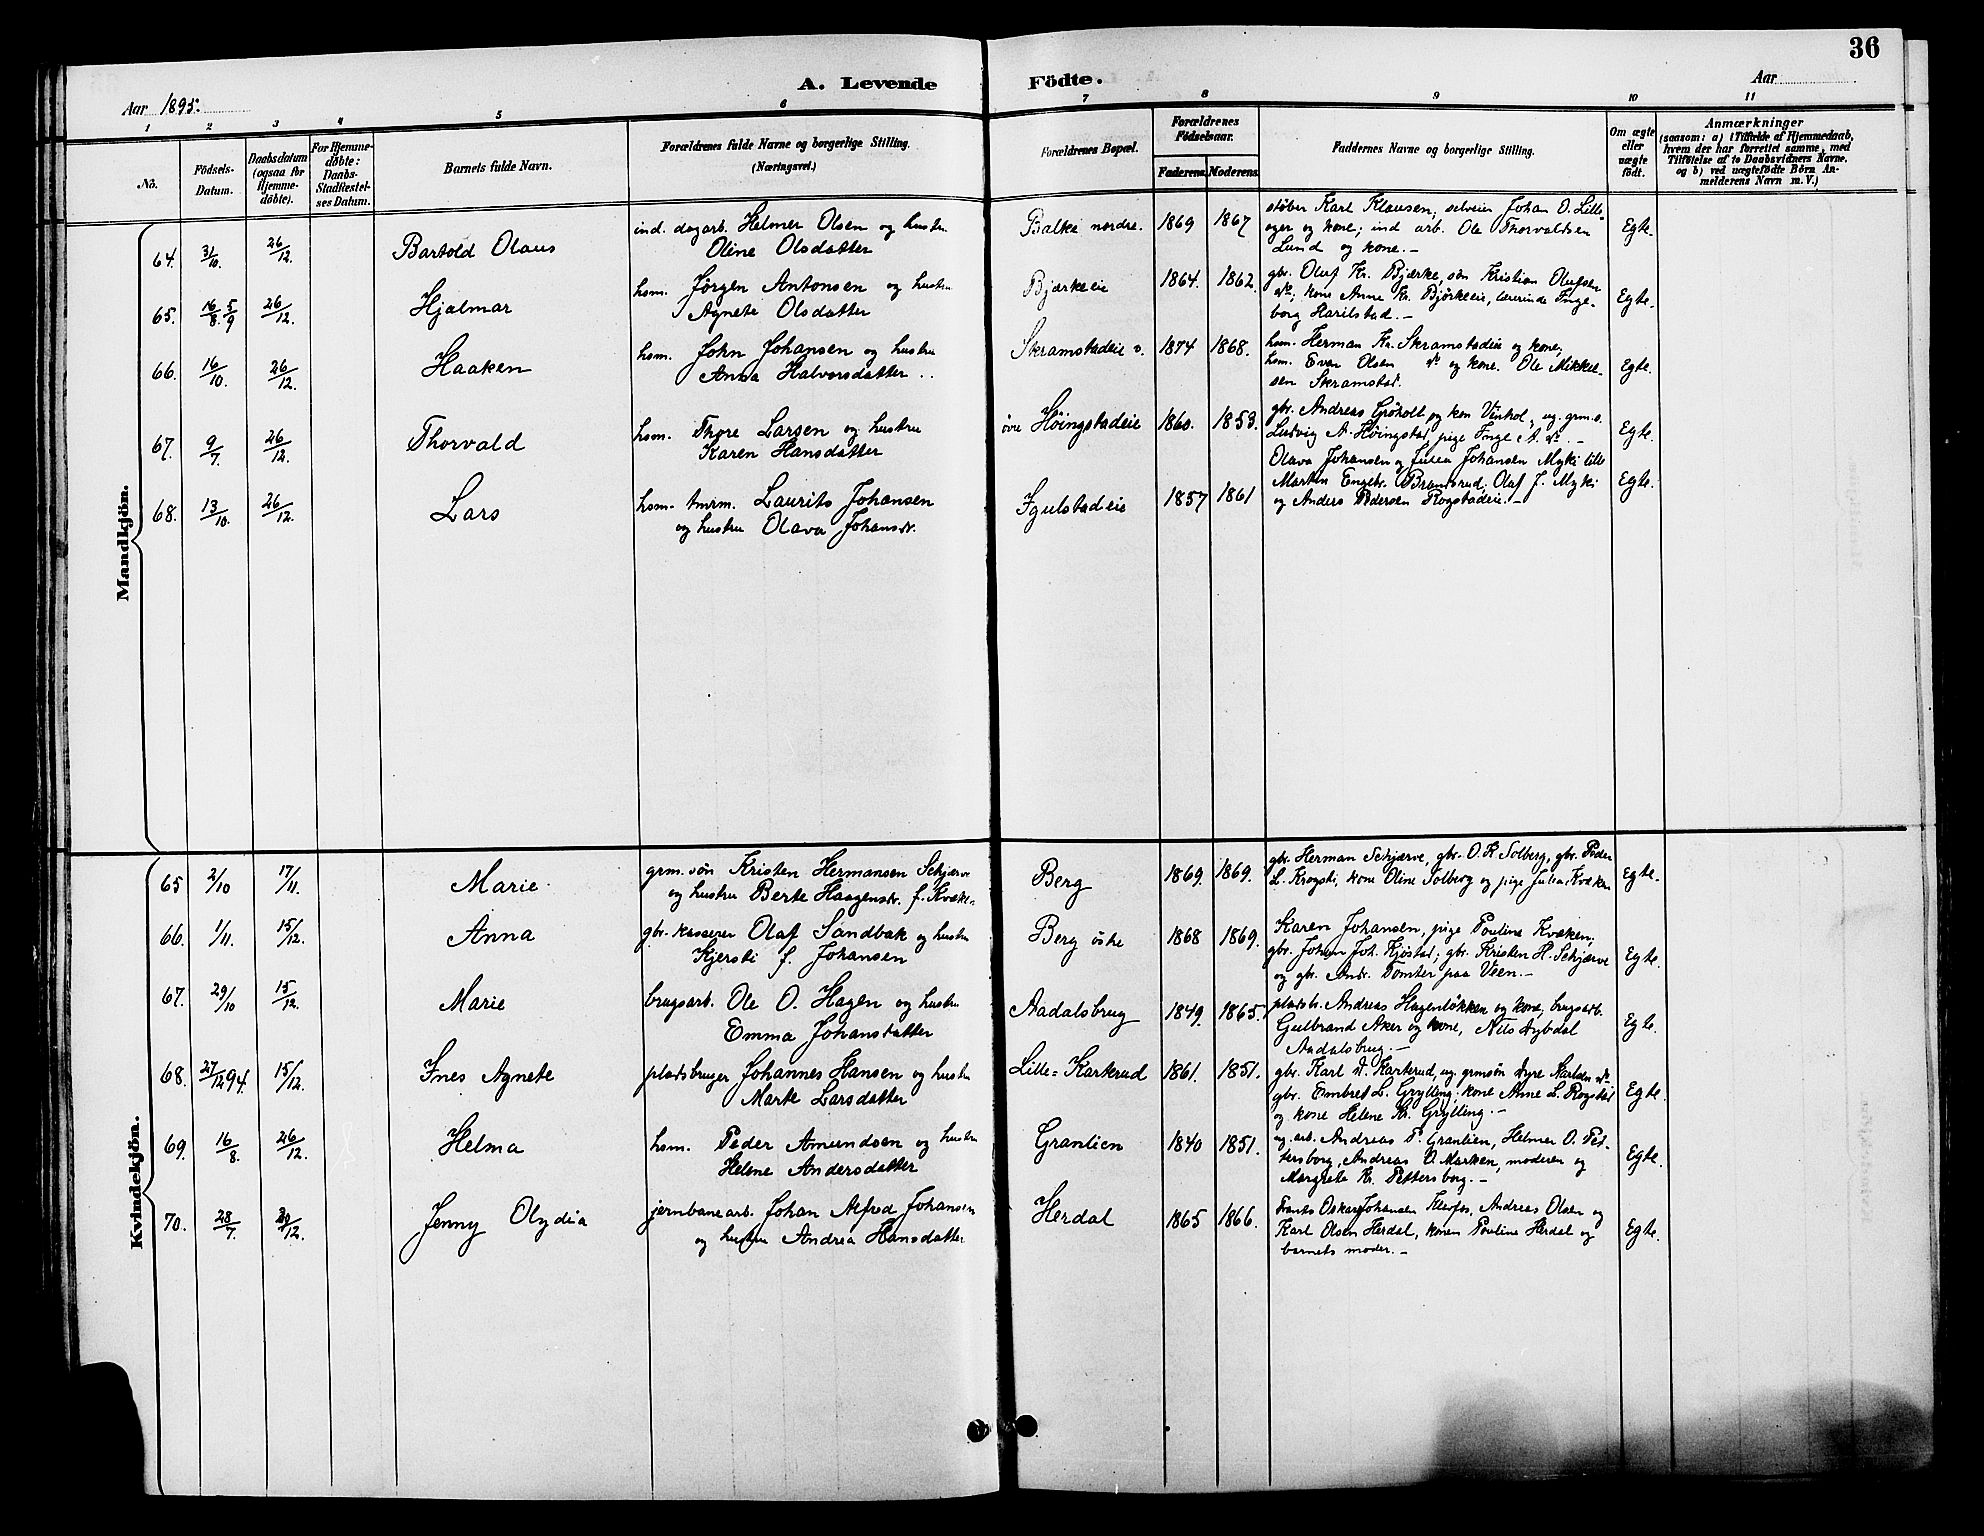 36
A. Levende Födte.
Aar 1895.
Aar
1 2 3 4 5 6 7 8 9 10 11
No.
Födsels-Datum.
Daabsdatum (ogsaa for Hjemme-döbte).
For Hjemme-döbte: Daabs-Stadfæstel-ses Datum.
Barnets fulde Navn.
Forældrenes fulde Navne og borgerlige Stilling. (Næringsvei.)
Forældrenes Bopæl.
Forældrenes Födselsaar.
Faderens Moderens
Faddernes Navne og borgerlige Stilling.
Om ægte eller uægte födt.
Anmærkninger
(saasom: a) i Tilfælde af Hjemmedaab,
hvem der har forrettet samme, med
Tilföielse af to Daabsvidners Navne,
og b) ved uægtefödte Börn An-
melderens Navn m. V.)
Mandkjön.
64. 31/10. 26/12. Bartold Olaus
ind. dagarb. Helmer Olsen og hustru
Oline Olsdatter
Balke nordre. 1869 1867
støber Karl Klausen; selveier Johan O. Lille-
eger og kone; ind arb. Ole Thorvaldsen
Lund og kone.-
Egte.
65. 16/8. 5/9 26/12. Hjalmar
hsm. Jörgen Antonsen og hustru
Agnete Olsdatter
Bjærkeeie 1864. 1862.
gbr. Oluf Kr. Bjærke, søn Kristian Olufsen
do; kone Anne Kr. Bjørkeeie, lærerinde Inge-
borg Harilstad.-
Egte.
66. 16/10. 26/12. Haaken
hsm. John Johansen og hustru
Anna Halvorsdatter
Skramstadeie v. 1874 1868.
hsm. Herman Kr. Skramstadeie og kone;
hsm. Even Olsen do og kone. Ole Mikkel-
sen Skramstad.
Egte.
67. 9/7. 26/12. Thorvald
hsm. Thore Larsen og hustru
Karen Hansdatter
övre Höingstadeie 1860. 1853.
gbr. Andreas Gröholt og kon , ug. grm.s.
Ludvig A. Höingstad, pige Inge A. do.-
Egte.
68. 13/10. 26/12. Lars
hsm. tmrm. Laurits Johansen
og hustru Olava Johansdr.
Igulstadeie 1857 1861
Olava Johansen og Julea Johansen Myki lille
Martin Engebr. Brandsrud. Olaf J. Myki
og Anders Pedersen Rogstadeie.-
Egte.
Kvindekjön.
65 2/10 17/11. Marie.
grm. søn Kristen Hermansen Schjærve
og hustru Berte Haagensdr. f. Kvæke-
Berg 1869. 1869.
gbr. Herman Schjærve, gbr. O. R. Solberg, gbr. Peder
L. Krogsti, kone Oline Solberg og pige Julea Kvæken
Egte.
66. 1/11. 15/12. Anna
gbr. kasserer Olaf Sandbak og hustru
Kjersti f. Johansen
Berg östre 1868 1869.
Karen Johansen, pige Pouline Kvæken;
gbr. Johan Joh. Kjöstad; gbr. Kristen H. Schjærve
og gbr. Andr. Tomter paa Veen.-
Egte.
67. 29/10 15/12. Marie
brugsarb. Ole O. Hagen og hustru
Emma Johansdatter
Aadalsbrug 1849. 1865.
pladsb. Andreas Hagenløkken og kone, brugsarb.
Gulbrand Aker og kone, Nils Nybdal
Aadalsbrug.-
Egte.
68. 27/12 94. 15/12. Ines Agnete
pladsbruger Johannes Hansen og hustru
Marte Larsdatter
Lille-Karterud 1861. 1851.
gbr. Karl A. Karterud, ug. grmsön Dyre Karlsen do
gbr. Embret L. Grylling. kone Anne L. Rogstad
og kone Helene Kr. Grylling.-
Egte.
69. 16/8. 26/12. Helma
hsm. Peder Amundsen og hustru
Helene Andersdatter
Granlien 1840 1851.
ug. arb. Andreas P. Granlien, Helmer O. Pet-
tersborg, Andreas O. Marken, moderen og
Margrete Kr. Pettersborg.-
Egte.
70. 28/7. /12. Jenny Olydia
jernbanearb. Johan Alfred Johansen
og hustru Andrea Hansdatter
Herdal 1865 1866.
Frants Oskar Johansen Klevfos, Andreas Olsen og
Karl Olsen Herdal, konen Pouline Herdal og
barnets moder.-
Egte.